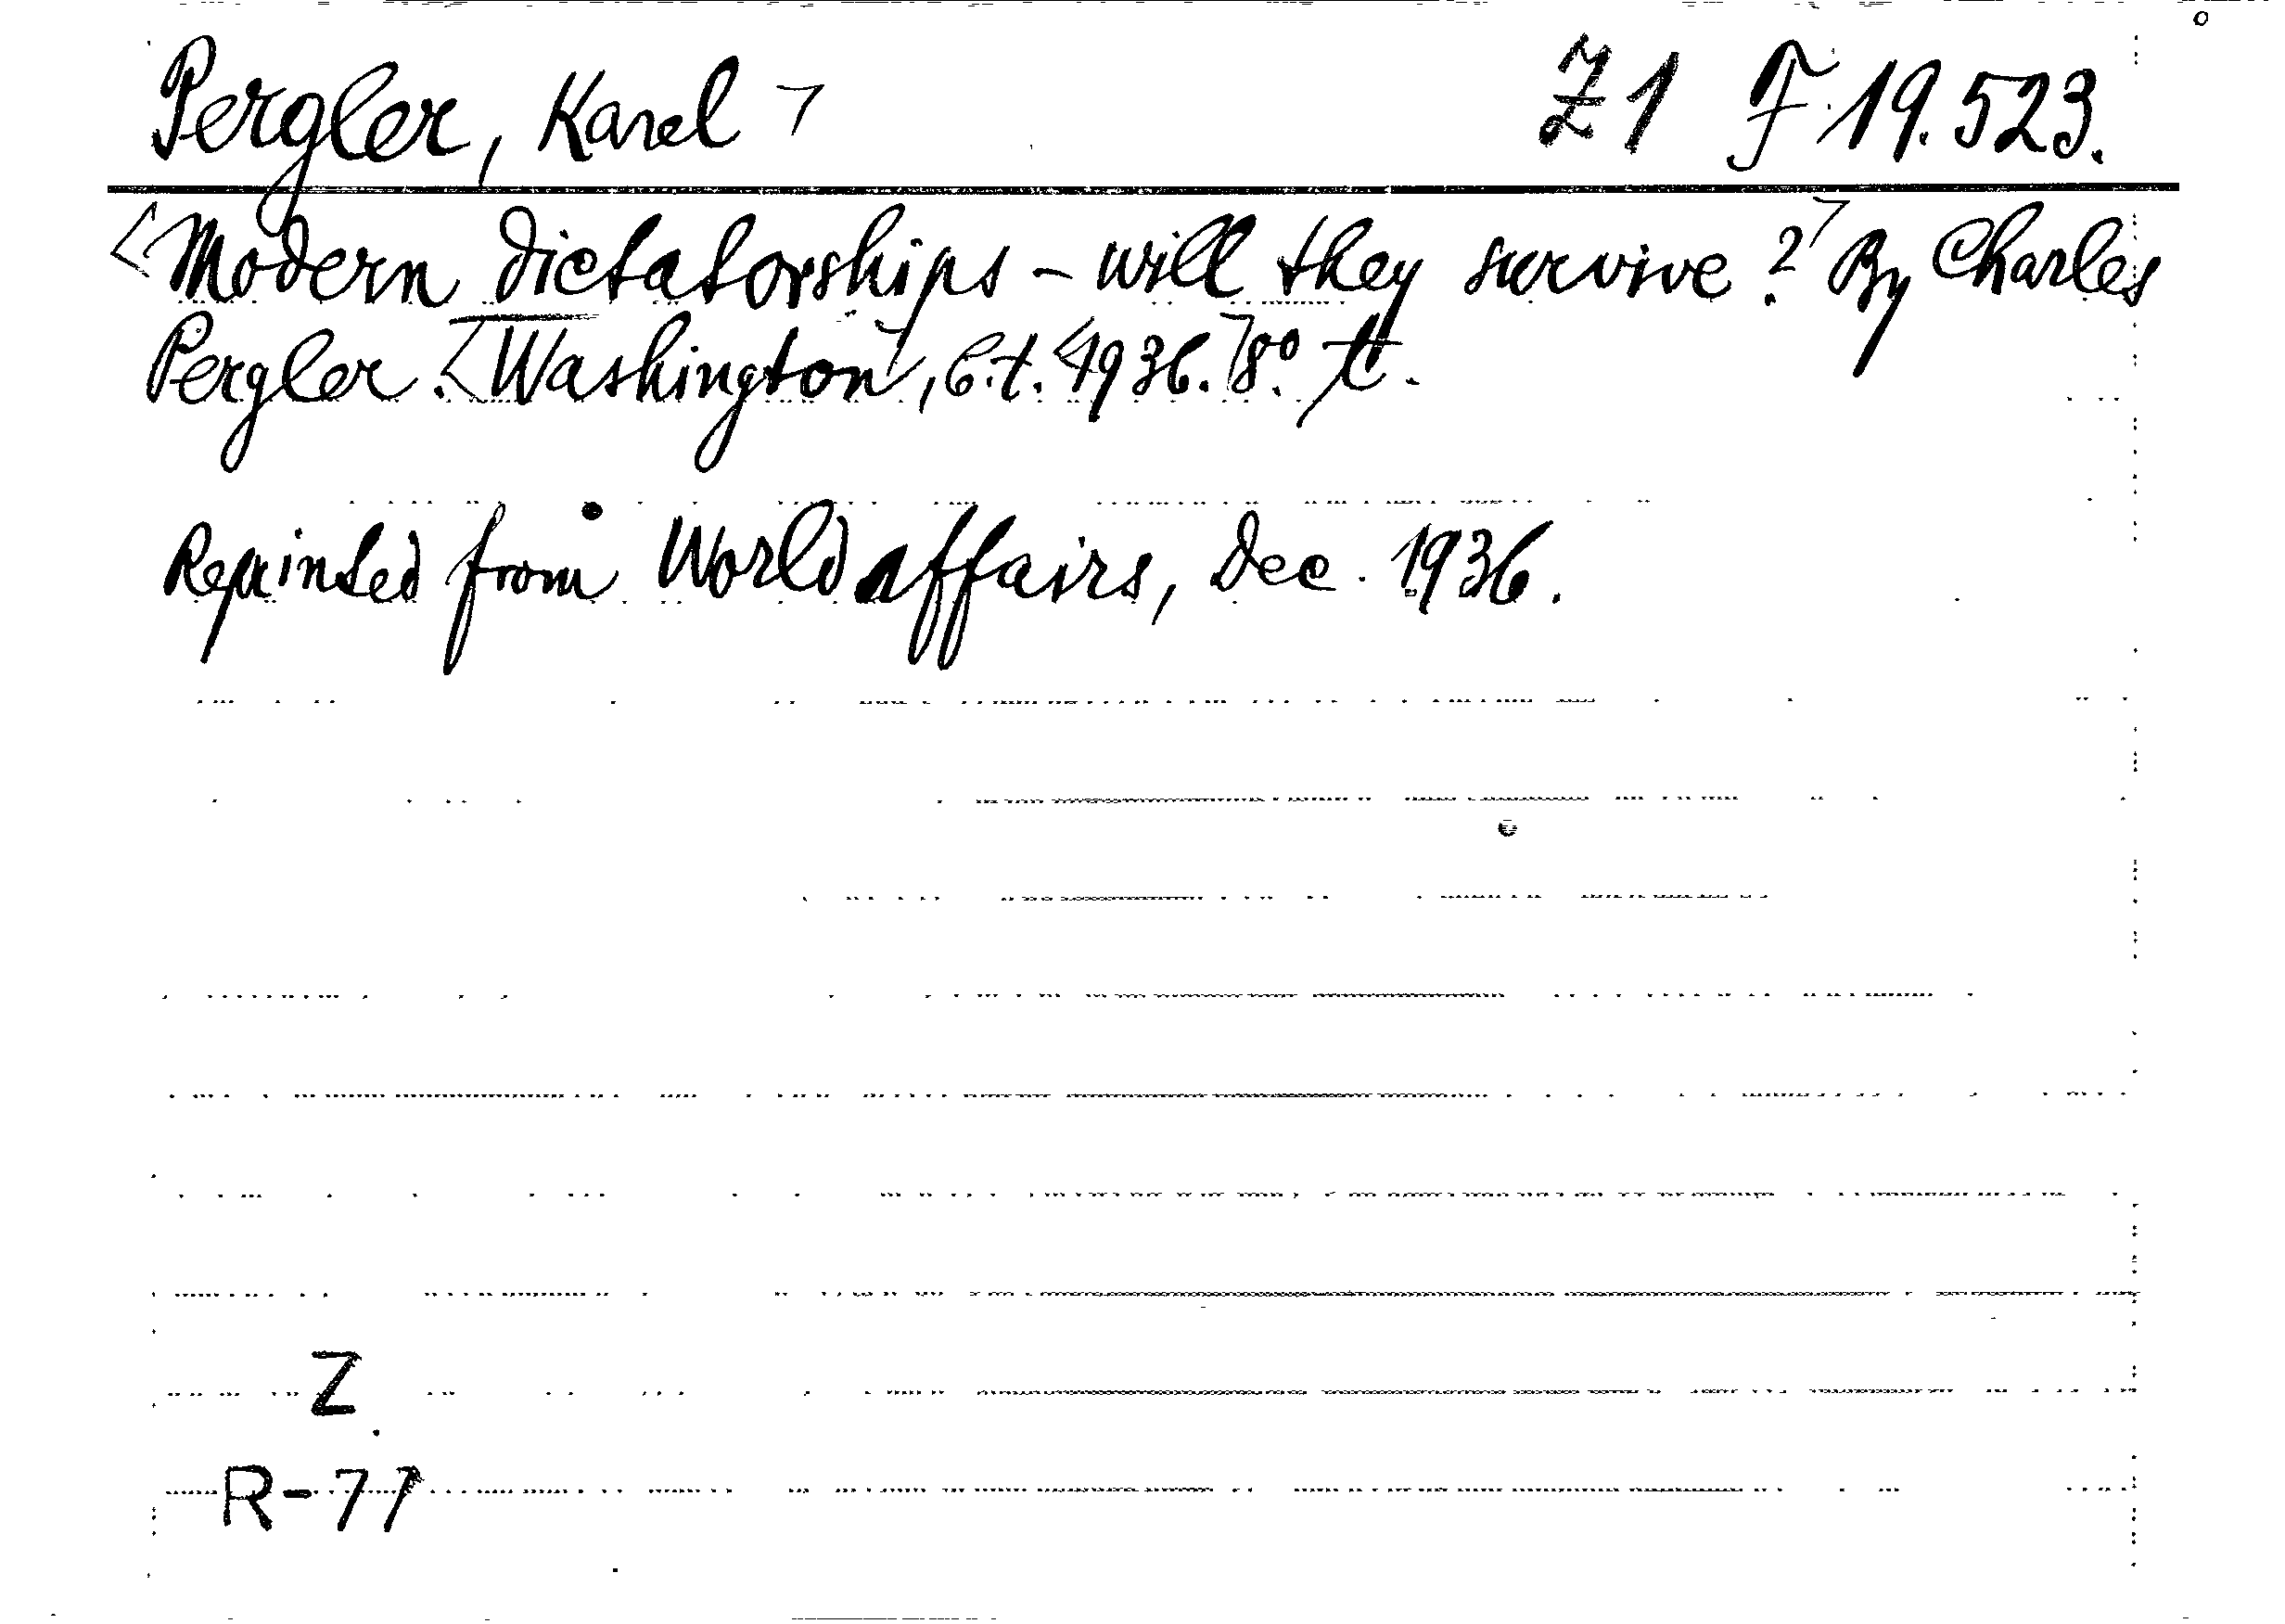 Pergler, Karel ¬ Z1 F 19.523.
<Modern dictatorships - will they survive?¬ By Charles
Pergler. <Washington¬, b.t. <1936.¬ 8°. tt.
Reprinted from World affairs, Dec. 1936.
Z
R-77